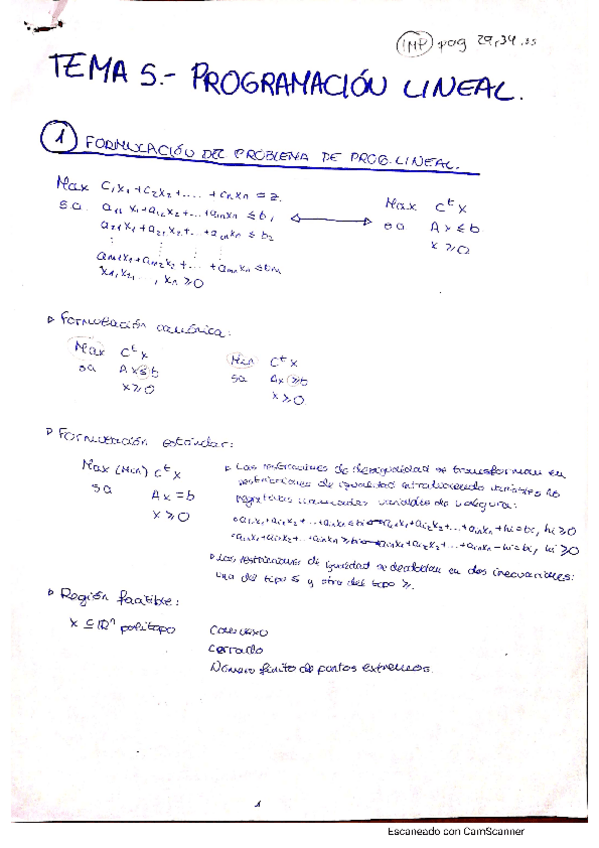 IMP pag 29,34,35
TEMA 5.- PROGRAMACIÓN LINEAL.
1 FORMULACIÓN DEL PROBLEMA DE PROG. LINEAL.
Max C₁x₁+C₂x₂+....+Cnxn = z.
sa a₁₁x₁+a₁₂x₂+...+a₁nxn ≤ b₁
a₂₁x₁+a₂₂x₂+...+a₂nxn ≤ b₂
⋮ ⋮ ⋮
am₁x₁+am₂x₂+...+amnxn ≤ bm
x₁,x₂,..., xn ≥ 0
Max Cᵗx
sa Ax ≤ b
x ≥ 0
▷ Formulación canónica:
Max Cᵗx
sa Ax ≤ b
x ≥ 0
Min Cᵗx
sa Ax ≥ b
x ≥ 0
▷ Formulación estándar:
Max (Min) Cᵗx
sa Ax = b
x ≥ 0
▷ Las restricciones de desigualdad se transforman en
restricciones de igualdad introduciendo variables no
negativas llamadas variables de holgura:
ai₁x₁+ai₂x₂+...+ainxn ≤ bi ai₁x₁+ai₂x₂+...+ainxn+hi=bi, hi ≥ 0
ai₁x₁+ai₂x₂+...+ainxn ≥ bi ai₁x₁+ai₂x₂+...+ainxn-hi=bi, hi ≥ 0
▷ Las restricciones de igualdad se desdoblan en dos inecuaciones:
una del tipo ≤ y otra del tipo ≥.
▷ Región factible:
X ⊆ ℝⁿ politopo
Convexo
Cerrado
Número finito de puntos extremos.
1
Escaneado con CamScanner